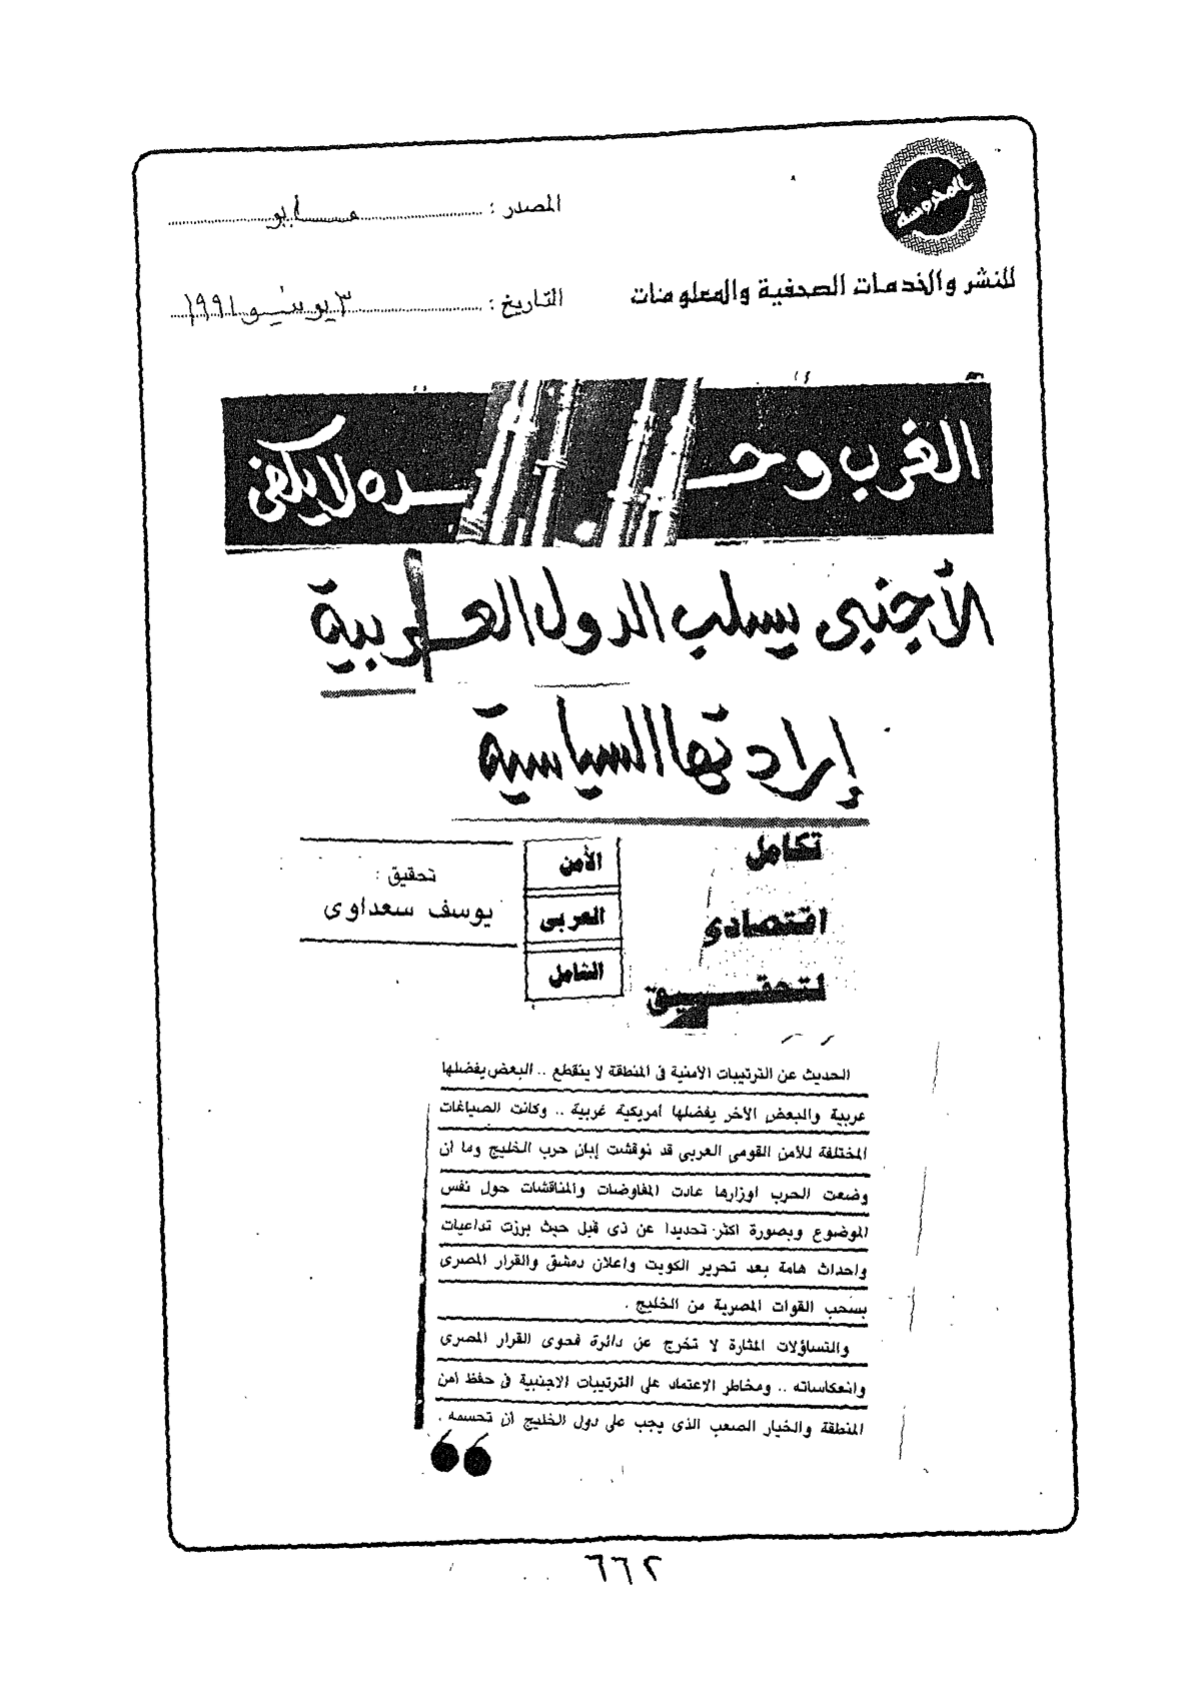 المحروسة
للنشر والخدمات الصحفية والمعلومات
المصدر : مـــايو
التاريخ : ٣ يونيو ١٩٩١
الغرب وحـــده لا يكفى
الأجنبى يسلب الدول العـربية
إرادتها السياسية
تكامل
اقتصادى
لتحقـــيق
الأمن
العربى
الشامل
تحقيق :
يوسف سعداوى
الحديث عن الترتيبات الأمنية فى المنطقة لا ينقطع .. البعض يفضلها
عربية والبعض الآخر يفضلها أمريكية غربية .. وكانت الصياغات
المختلفة للأمن القومى العربى قد نوقشت إبان حرب الخليج وما أن
وضعت الحرب اوزارها عادت المفاوضات والمناقشات حول نفس
الموضوع وبصورة اكثر تحديدا عن ذى قبل حيث برزت تداعيات
واحداث هامة بعد تحرير الكويت واعلان دمشق والقرار المصرى
بسحب القوات المصرية من الخليج .
والتساؤلات المثارة لا تخرج عن دائرة فحوى القرار المصرى
وانعكاساته .. ومخاطر الاعتماد على الترتيبات الاجنبية فى حفظ أمن
المنطقة والخيار الصعب الذى يجب على دول الخليج أن تحسمه .
٦٦٢